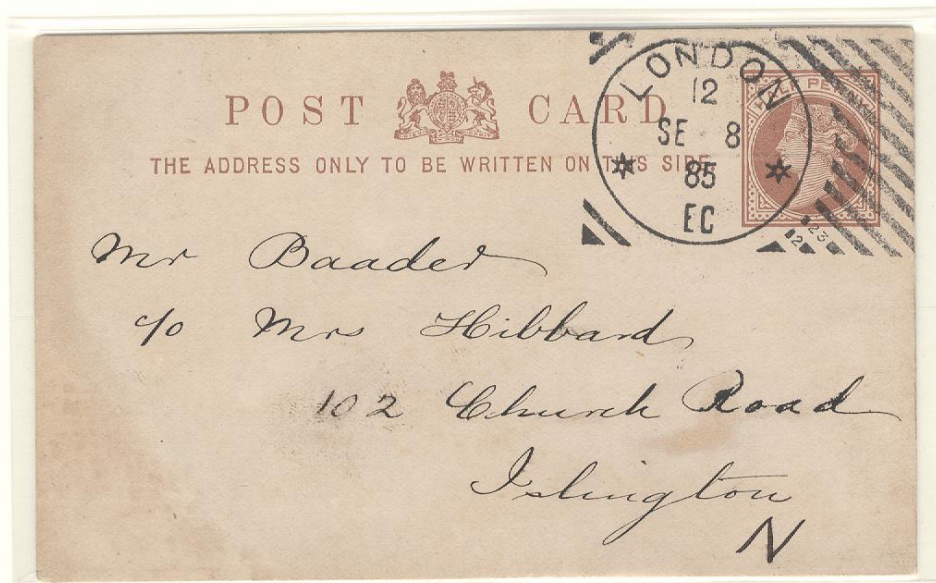 POST CARD
THE ADDRESS ONLY TO BE WRITTEN ON THIS SIDE.
HALF PENNY
LONDON
12
SE 8
85
EC
23
12
Mr Baader
c/o Mrs Hibbard
102 Church Road
Islington
N